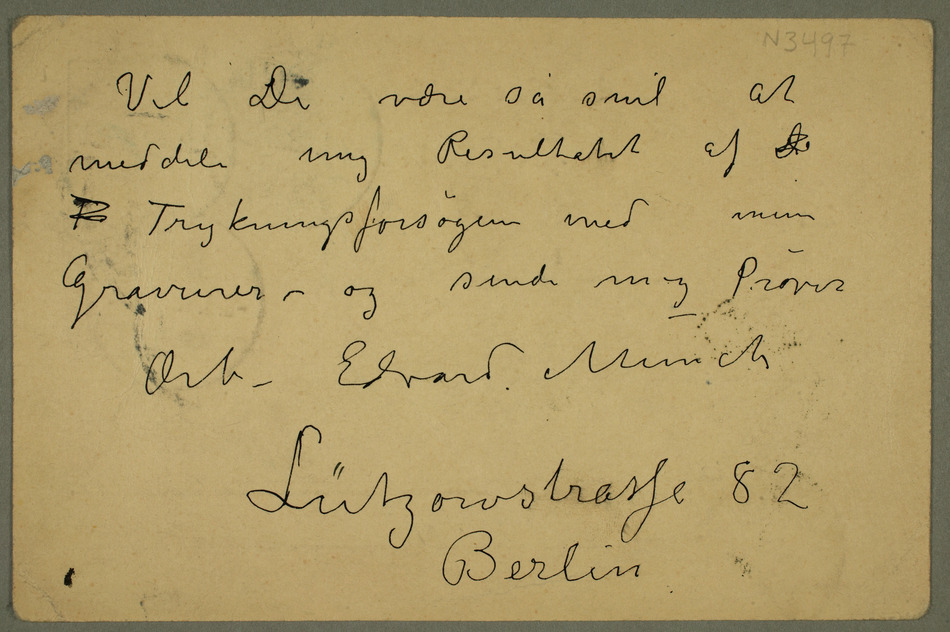 N3497
Vil De være så snil at
meddele mig Resultatet af
Trykningsforsøgene med mine
Graveurer – og sende mig Prøver
Ærb– Edvard Munch
Lützowstrasse 82
Berlin